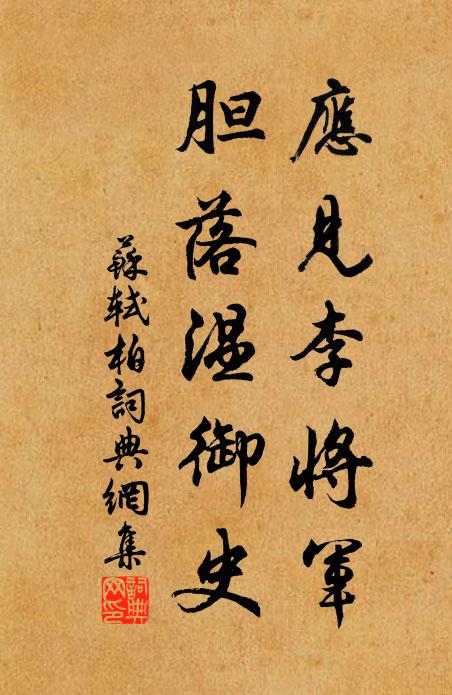 應見李將軍
胆落温御史
蘇軾柏詞典網集
詞典
网印